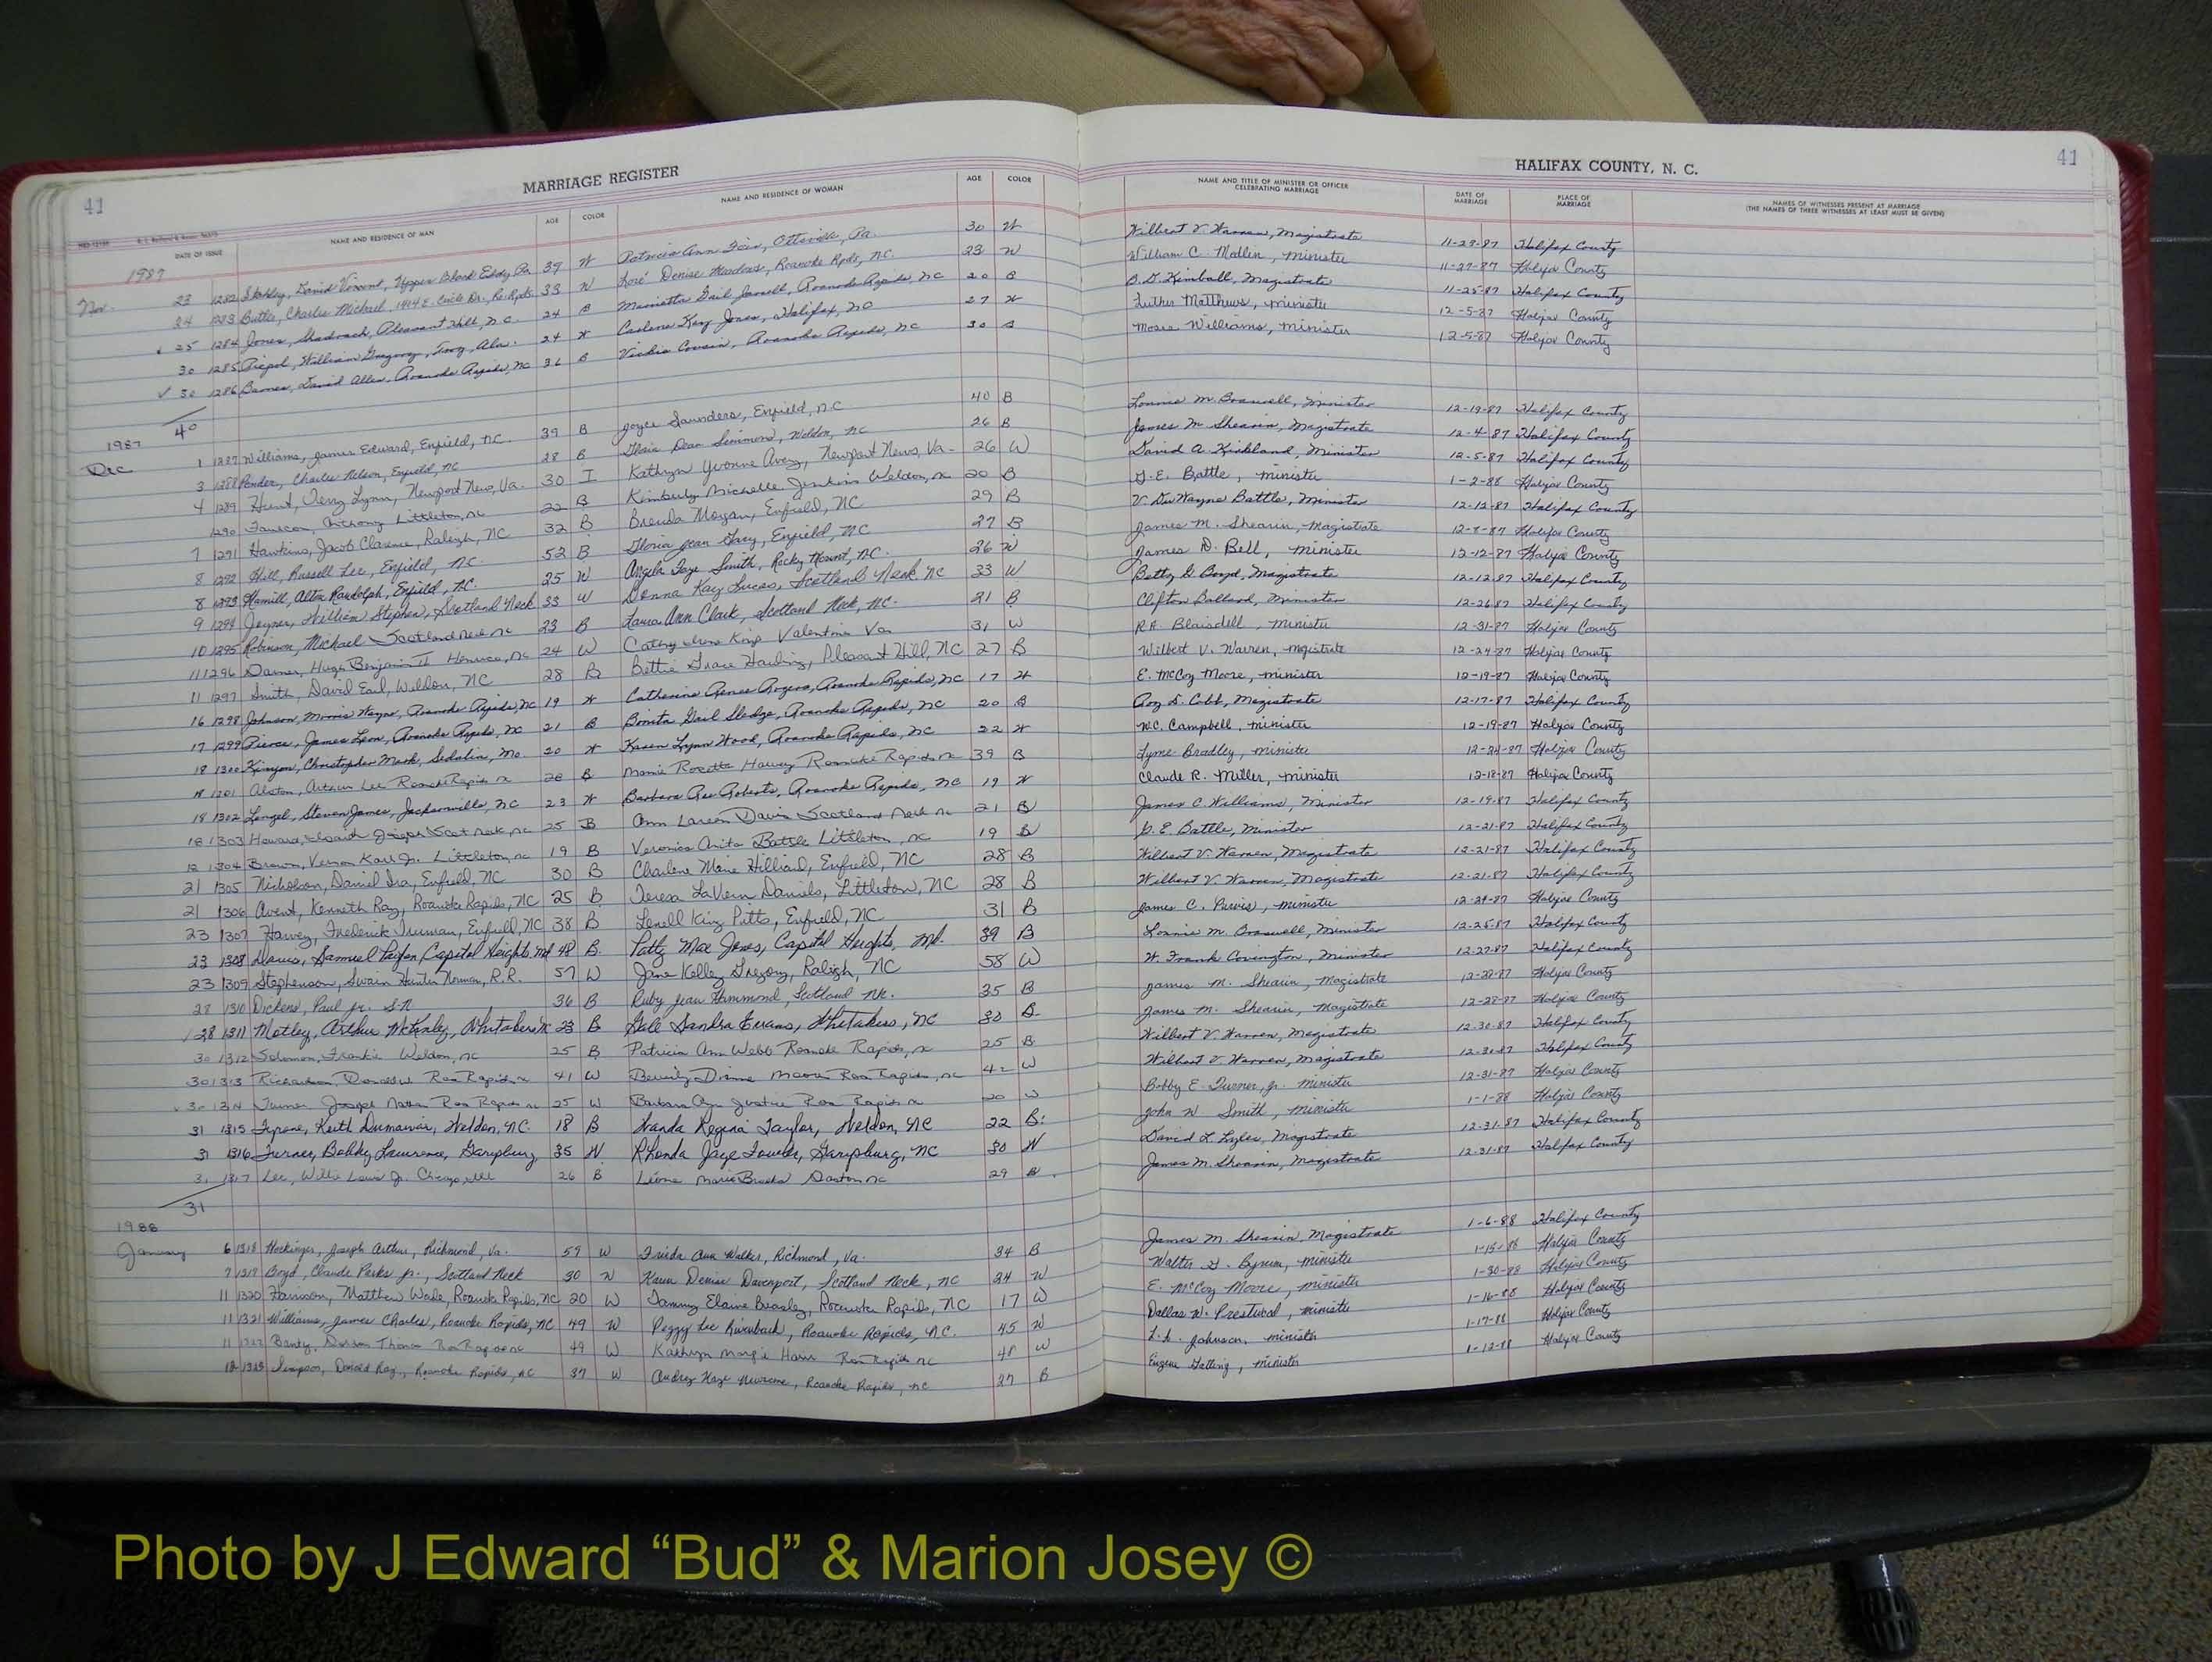 41
MARRIAGE REGISTER
HALIFAX COUNTY, N. C.
41
DATE OF ISSUE NAME AND RESIDENCE OF MAN AGE COLOR NAME AND RESIDENCE OF WOMAN AGE COLOR NAME AND TITLE OF MINISTER OR OFFICER CELEBRATING MARRIAGE DATE OF MARRIAGE PLACE OF MARRIAGE NAMES OF WITNESSES PRESENT AT MARRIAGE (THE NAMES OF THREE WITNESSES AT LEAST MUST BE GIVEN)
1987
Nov. 23 1282 David Vincent, Upper Black Eddy Pa 39 W Patricia Ann Pa. 30 W Wilbert V. Warren, Magistrate Halifax County
24 1283 Butler, Charles Michael, 1414 E. Circle Dr., Ro. Rpds. 33 W Denise Meadows, Roanoke Rpds, N.C. 23 W William C. Medlin, minister 11-27-87 Halifax County
25 1284 Jones, Shadrach, Pleasant Hill, N.C. 24 B Gail Roanoke Rapids NC 20 B B. G. Kimball, Magistrate 11-25-87 Halifax County
30 1285 William Gregory, Troy, Ala. 24 W Kay Jones, Halifax, NC 27 W Luther Matthews, minister 12-5-87 Halifax County
30 1286 Barnes, David Allen, Roanoke Rapids, NC 36 B Vickie Cousin, Roanoke Rapids, NC 30 B Moses Williams, minister 12-5-87 Halifax County
40
1987
Dec 1 1287 Williams, James Edward, Enfield, N.C. 39 B Joyce Saunders, Enfield, N.C. 40 B Lonnie M. Braswell, Minister 12-19-87 Halifax County
3 1288 Pender, Charles Nelson, Enfield, NC 28 B Dean Simmons, Weldon, NC 26 B James M. Shearin, Magistrate 12-4-87 Halifax County
4 1289 Hunt, Jerry Lynn, Newport News, Va. 30 I Kathryn Yvonne Avey, Newport News, Va. 26 W David A. Kirkland, Minister 12-5-87 Halifax County
1290 Faucon, Anthony Littleton, NC 22 B Kimberly Michelle Jenkins Weldon, NC 20 B G. E. Battle, minister 1-2-88 Halifax County
7 1291 Hawkins, Jacob Clarence, Raleigh, NC 32 B Brenda Morgan, Enfield, NC 29 B V. DuWayne Battle, Minister 12-12-87 Halifax County
8 1292 Hill, Russell Lee, Enfield, N.C. 52 B Gloria Jean Gary, Enfield, NC 27 B James M. Shearin, Magistrate 12-8-87 Halifax County
8 1293 Hamill, Alton Randolph, Enfield, N.C. 25 W Angela Faye Smith, Rocky Mount, N.C. 26 W James D. Bell, minister 12-12-87 Halifax County
9 1294 Joyner, William Stephen, Scotland Neck 33 W Donna Kay Lucas, Scotland Neck NC 33 W Betty G. Boyd, Magistrate 12-12-87 Halifax County
10 1295 Robinson, Michael Scotland Neck NC 23 B Laura Ann Clark, Scotland Neck, N.C. 21 B Clifton Ballard, Minister 12-26-87 Halifax County
11 1296 Hugh Benjamin II Henrico, NC 24 W King Valentine Va 31 W R.A. Blaisdell, minister 12-31-87 Halifax County
11 1297 Smith, David Earl, Weldon, NC 28 B Bettie Grace Harding, Pleasant Hill, NC 27 B Wilbert V. Warren, magistrate 12-24-87 Halifax County
16 1298 Johnson, Morris Wayne, Roanoke Rapids, NC 19 W Catherine Renee Rogers, Roanoke Rapids, NC 17 W E. McCoy Moore, minister 12-19-87 Halifax County
17 1299 Pierce, James Leon, Roanoke Rapids, NC 21 B Bonita Gail Sledge, Roanoke Rapids, NC 20 B Roy D. Cobb, Magistrate 12-17-87 Halifax County
18 1300 Kinyon, Christopher Mark, Sedalia, Mo. 20 W Karen Lynn Wood, Roanoke Rapids, NC 22 W W.C. Campbell, minister 12-19-87 Halifax County
18 1301 Alston, Arthur Lee Roanoke Rapids NC 28 B Mamie Rosetta Harvey Roanoke Rapids NC 39 B Lyme Bradley, minister Halifax County
18 1302 Lengel, Steven James, Jacksonville, NC 23 W Barbara Roberts, Roanoke Rapids, NC 19 W Claude R. Miller, minister 12-18-87 Halifax County
18 1303 Howard, Joseph Scot Neck, NC 25 B Ann Davis Scotland Neck NC 21 B James C. Williams, Minister 12-19-87 Halifax County
18 1304 Brown, Vernon Karl Jr. Littleton, NC 19 B Veronica Anita Battle Littleton, NC 19 B G. E. Battle, Minister 12-21-87 Halifax County
21 1305 Nicholson, Daniel Ira, Enfield, NC 30 B Charlene Marie Hilliard, Enfield, NC 28 B Wilbert V. Warren, Magistrate 12-21-87 Halifax County
21 1306 Avent, Kenneth Ray, Roanoke Rapids, NC 25 B Teresa LaVern Daniels, Littleton, NC 28 B Wilbert V. Warren, Magistrate 12-21-87 Halifax County
23 1307 Harvey, Frederick Truman, Enfield, NC 38 B Lenell King Pitts, Enfield, NC 31 B James C. Purvis, minister Halifax County
23 1308 Davis, Samuel Capitol Heights Md 48 B Patty Mae Jones, Capitol Heights, Md. 39 B Lonnie M. Braswell, Minister 12-25-87 Halifax County
23 1309 Stephenson, Swain Hunter Norman, R.R. 57 W Jane Kelley Gregory, Raleigh, NC 58 W W. Frank Covington, Minister 12-27-87 Halifax County
28 1310 Dickens, Paul Jr. S.N. 36 B Ruby Jean Hammond, Scotland Nk. 35 B James M. Shearin, Magistrate 12-28-87 Halifax County
28 1311 Motley, Arthur McKinley, Whitakers NC 23 B Gale Sandra Evans, Whitakers, NC 30 B James M. Shearin, Magistrate 12-28-87 Halifax County
30 1312 Solomon, Frankie Weldon, NC 25 B Patricia Ann Webb Roanoke Rapids, NC 25 B Wilbert V. Warren, Magistrate 12-30-87 Halifax County
30 1313 Richardson, Donald W. Roa Rapids NC 41 W Beverly Diane Moore Roa Rapids, NC 42 W Wilbert V. Warren, Magistrate Halifax County
30 1314 Turner, Joseph Nathan Roa Rapids NC 25 W Barbara Ann Justice Roa Rapids NC 20 W Bobby E. Turner, Jr. minister 12-31-87 Halifax County
31 1315 Keith Dumawar, Weldon, NC 18 B Wanda Regina Taylor, Weldon, NC 22 B John W Smith, minister 1-1-88 Halifax County
31 1316 Turner, Bobby Lawrence, Garysburg 35 W Rhonda Jaye Garysburg, NC 30 W David L. Lyles, Magistrate 12-31-87 Halifax County
31 1317 Lee, Willie Louis Jr. Chicago, Ill 26 B Marie Brooks Gaston NC 29 B James M. Shearin, Magistrate 12-31-87 Halifax County
31
1988
January 6 1318 Joseph Arthur, Richmond, Va. 59 W Frieda Ann Walker, Richmond, Va. 34 B James M. Shearin, Magistrate 1-6-88 Halifax County
7 1319 Boyd, Claude Parks Jr., Scotland Neck 30 W Karen Denise Davenport, Scotland Neck, NC 24 W Walter G. Byrum, minister Halifax County
11 1320 Harrison, Matthew Wade, Roanoke Rapids, NC 20 W Tammy Elaine Beasley, Roanoke Rapids, NC 17 W E. McCoy Moore, minister 1-30-88 Halifax County
11 1321 Williams, James Charles, Roanoke Rapids, NC 49 W Peggy Lee Roanoke Rapids, N.C. 45 W Dallas W. Prestwood, minister 1-16-88 Halifax County
11 1322 Thomas Roa Rapids NC 49 W Kathryn Roa Rapids NC 41 W Johnson, minister 1-17-88 Halifax County
12 1323 Simpson, Donald Ray, Roanoke Rapids, NC 37 W Audrey Kaye Roanoke Rapids, NC 27 B Eugene Gatling, minister 1-12-88 Halifax County
Photo by J Edward “Bud” & Marion Josey ©